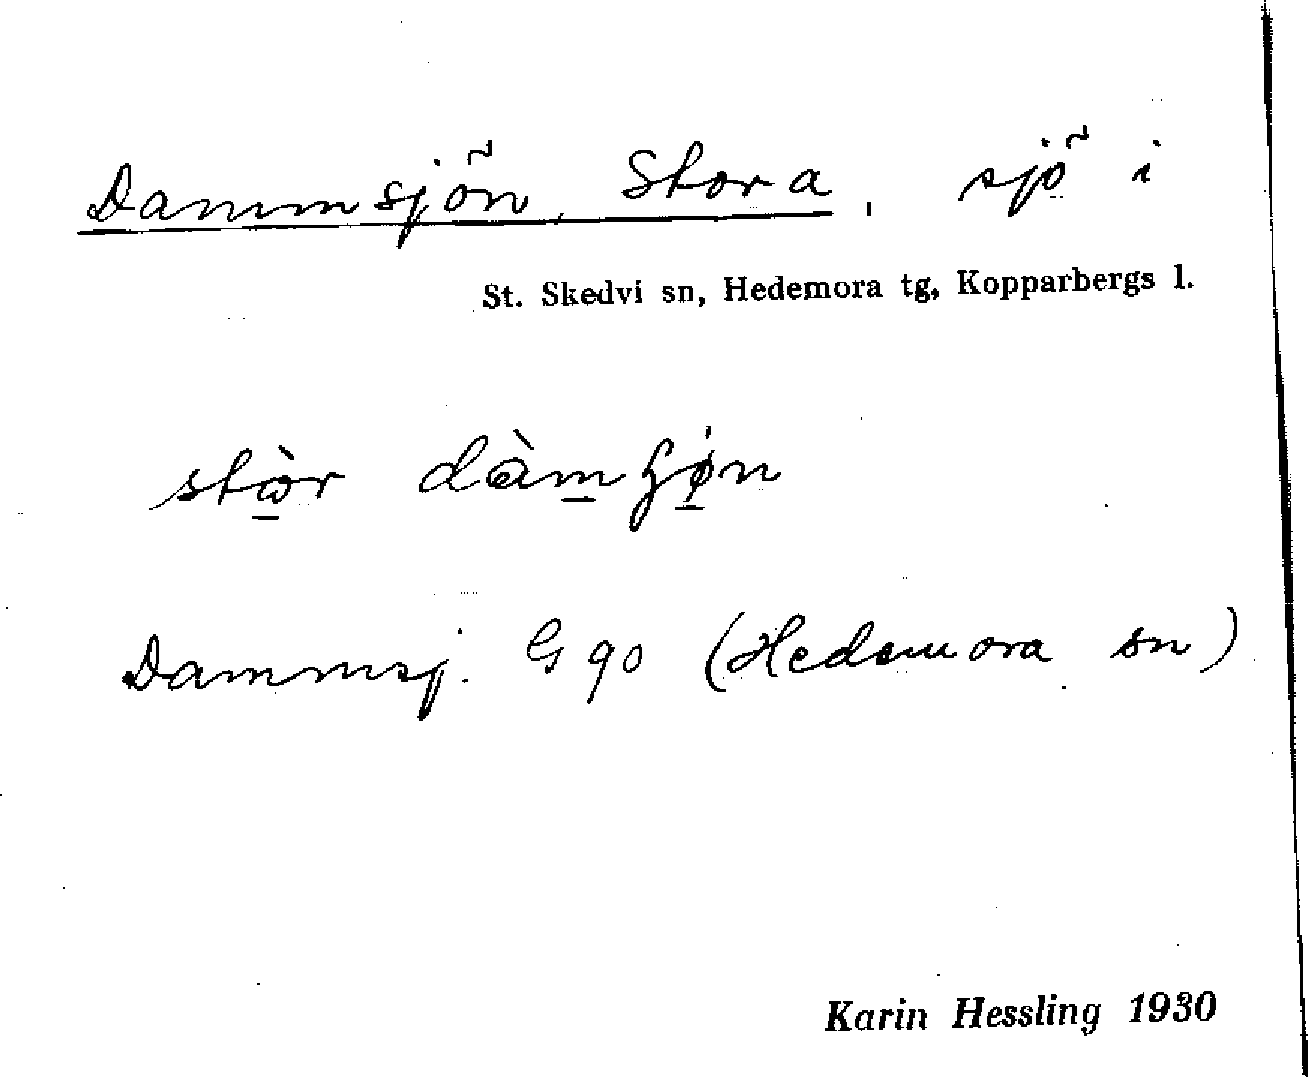 Dammsjön, Stora, sjö i
St. Skedvi sn, Hedemora tg, Kopparbergs l.
stòr
Dammsj. G 90 (Hedemora sn)
Karin Hessling 1930